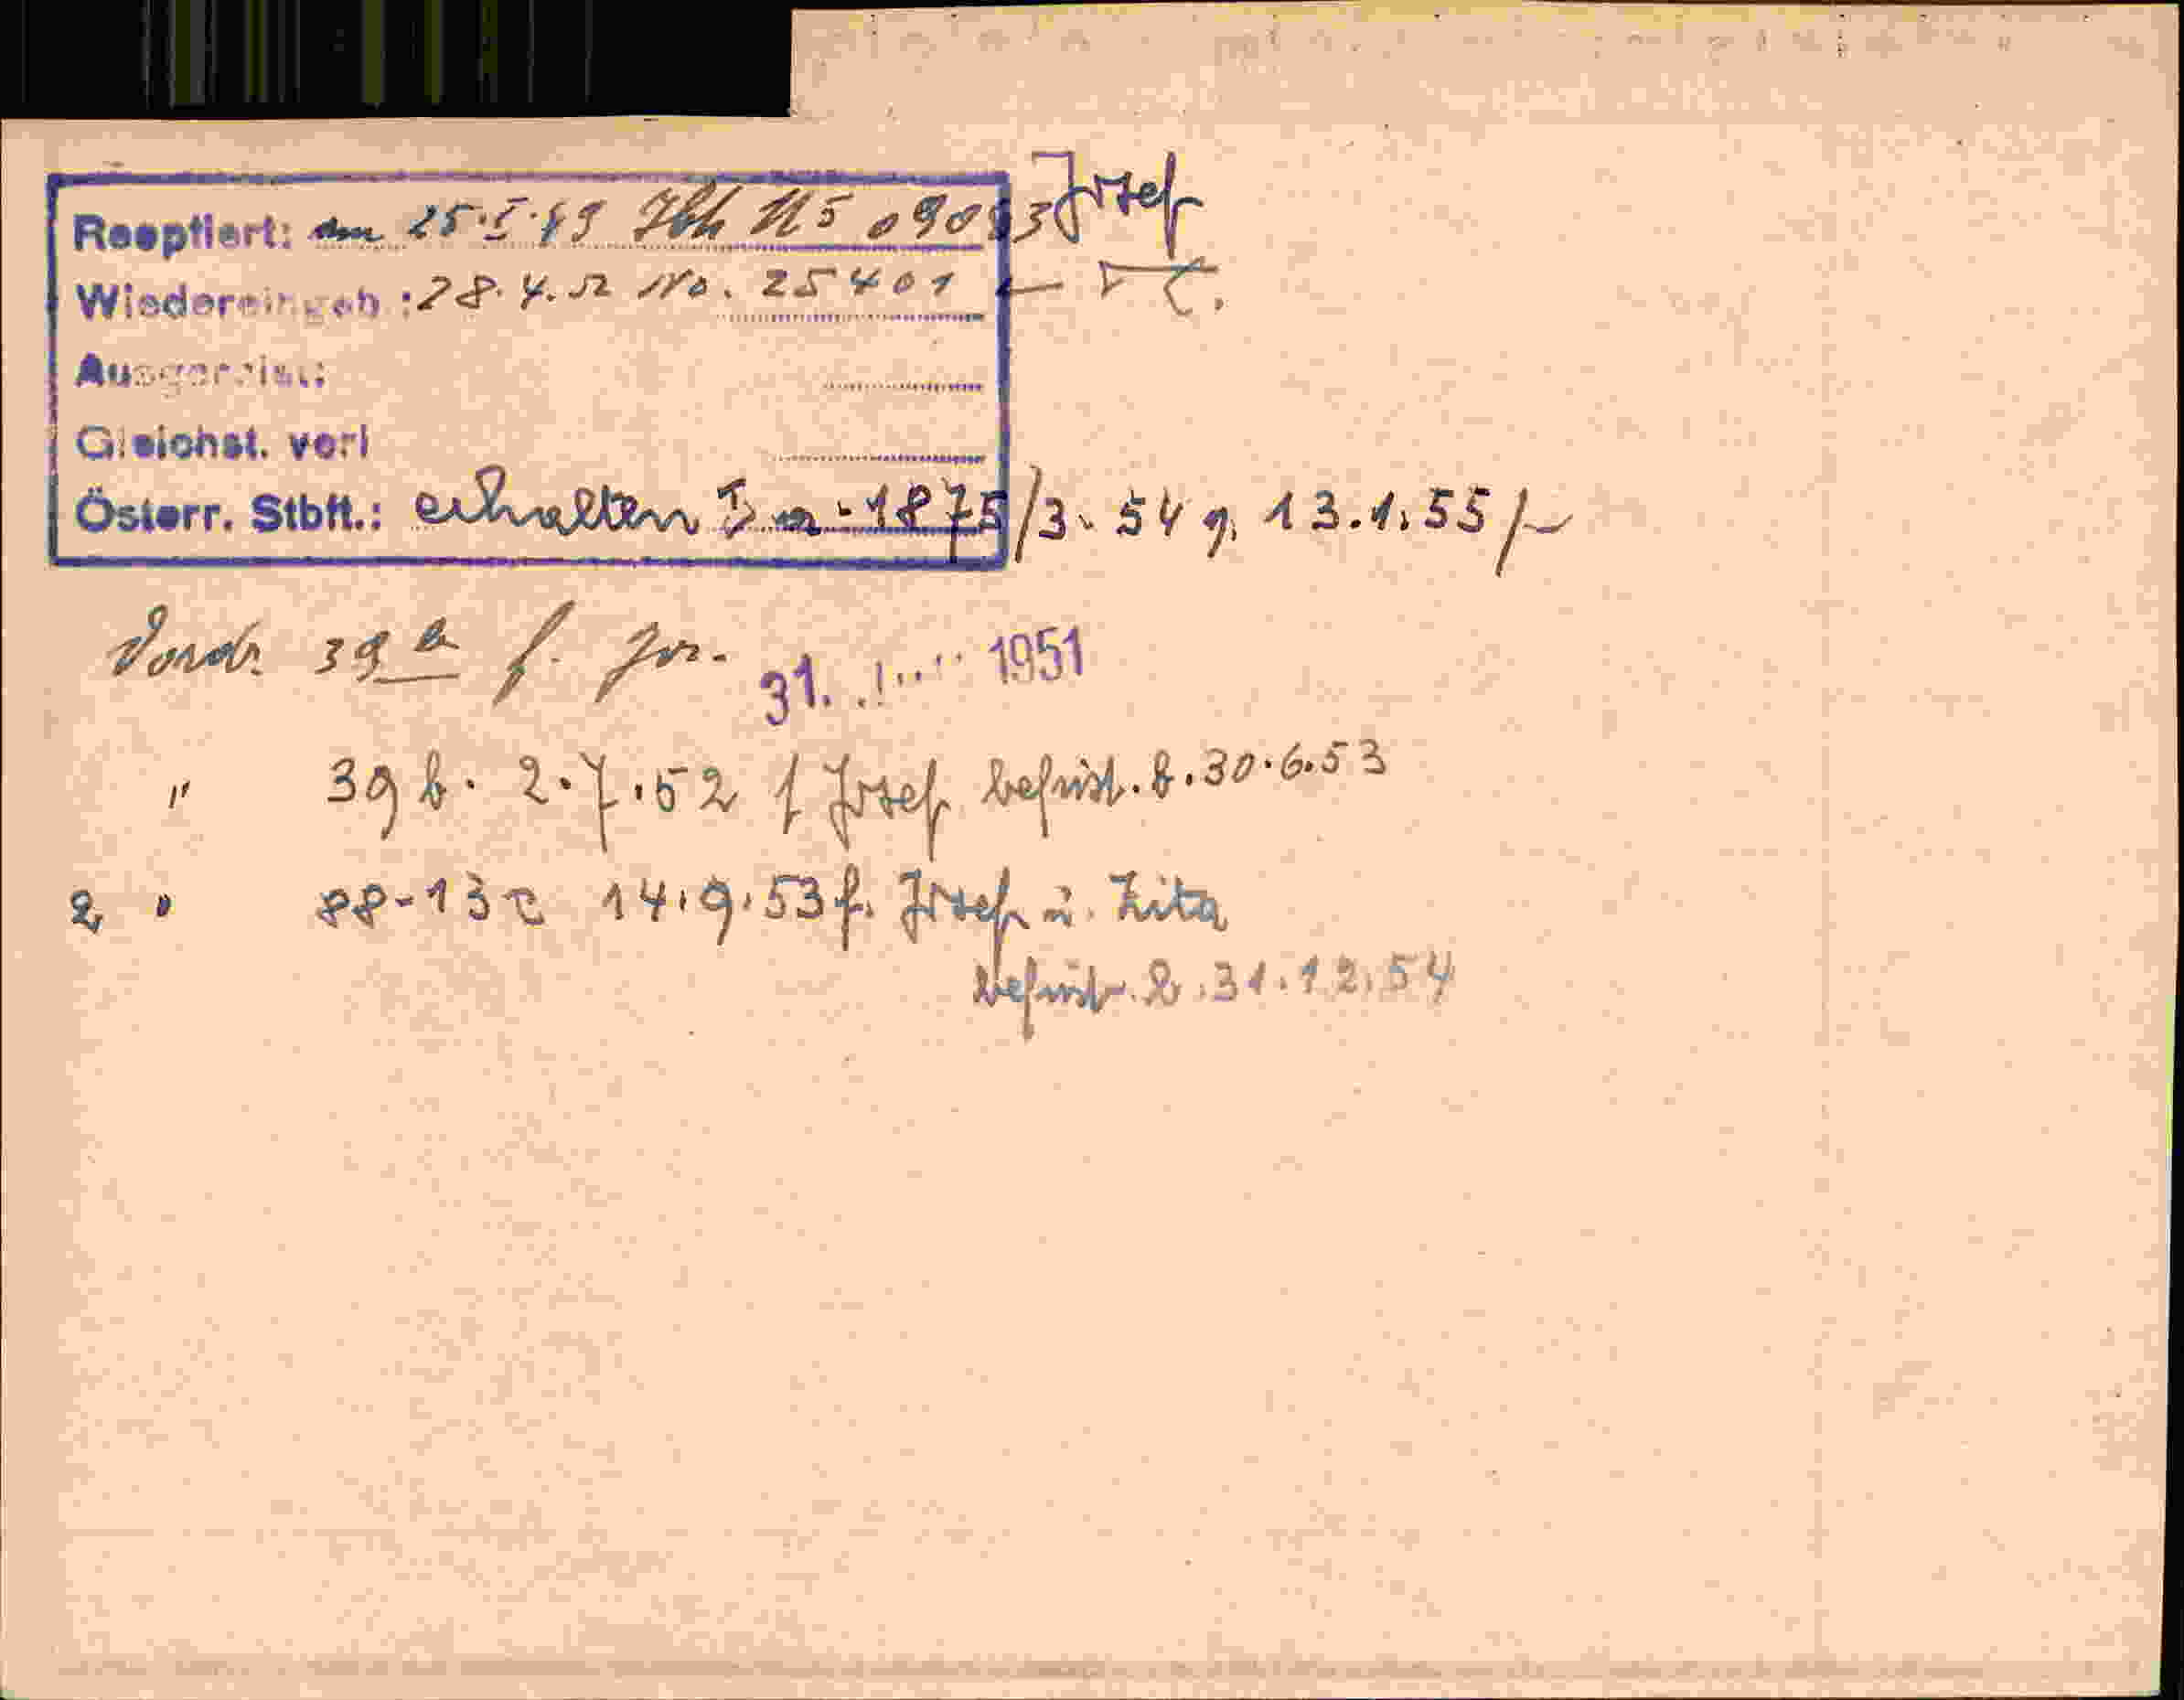 Reoptiert: am 25.I.49 Zhl M5 09083 Josef
Wiedereingeb: 28.4.52 No. 25401
Ausgereist:
Gleichst. verl
Österr. Stbft.: erhalten I a - 1875/3 - 54 v. 13.1.55
Vordr. 39 a f. Jos. 31. 1951
" 39 b. 2.7.52 f Josef befrist. b. 30.6.53
2 " 88-13c 14.9.53 f. Josef u. Zita
befrist. b. 31.12.54